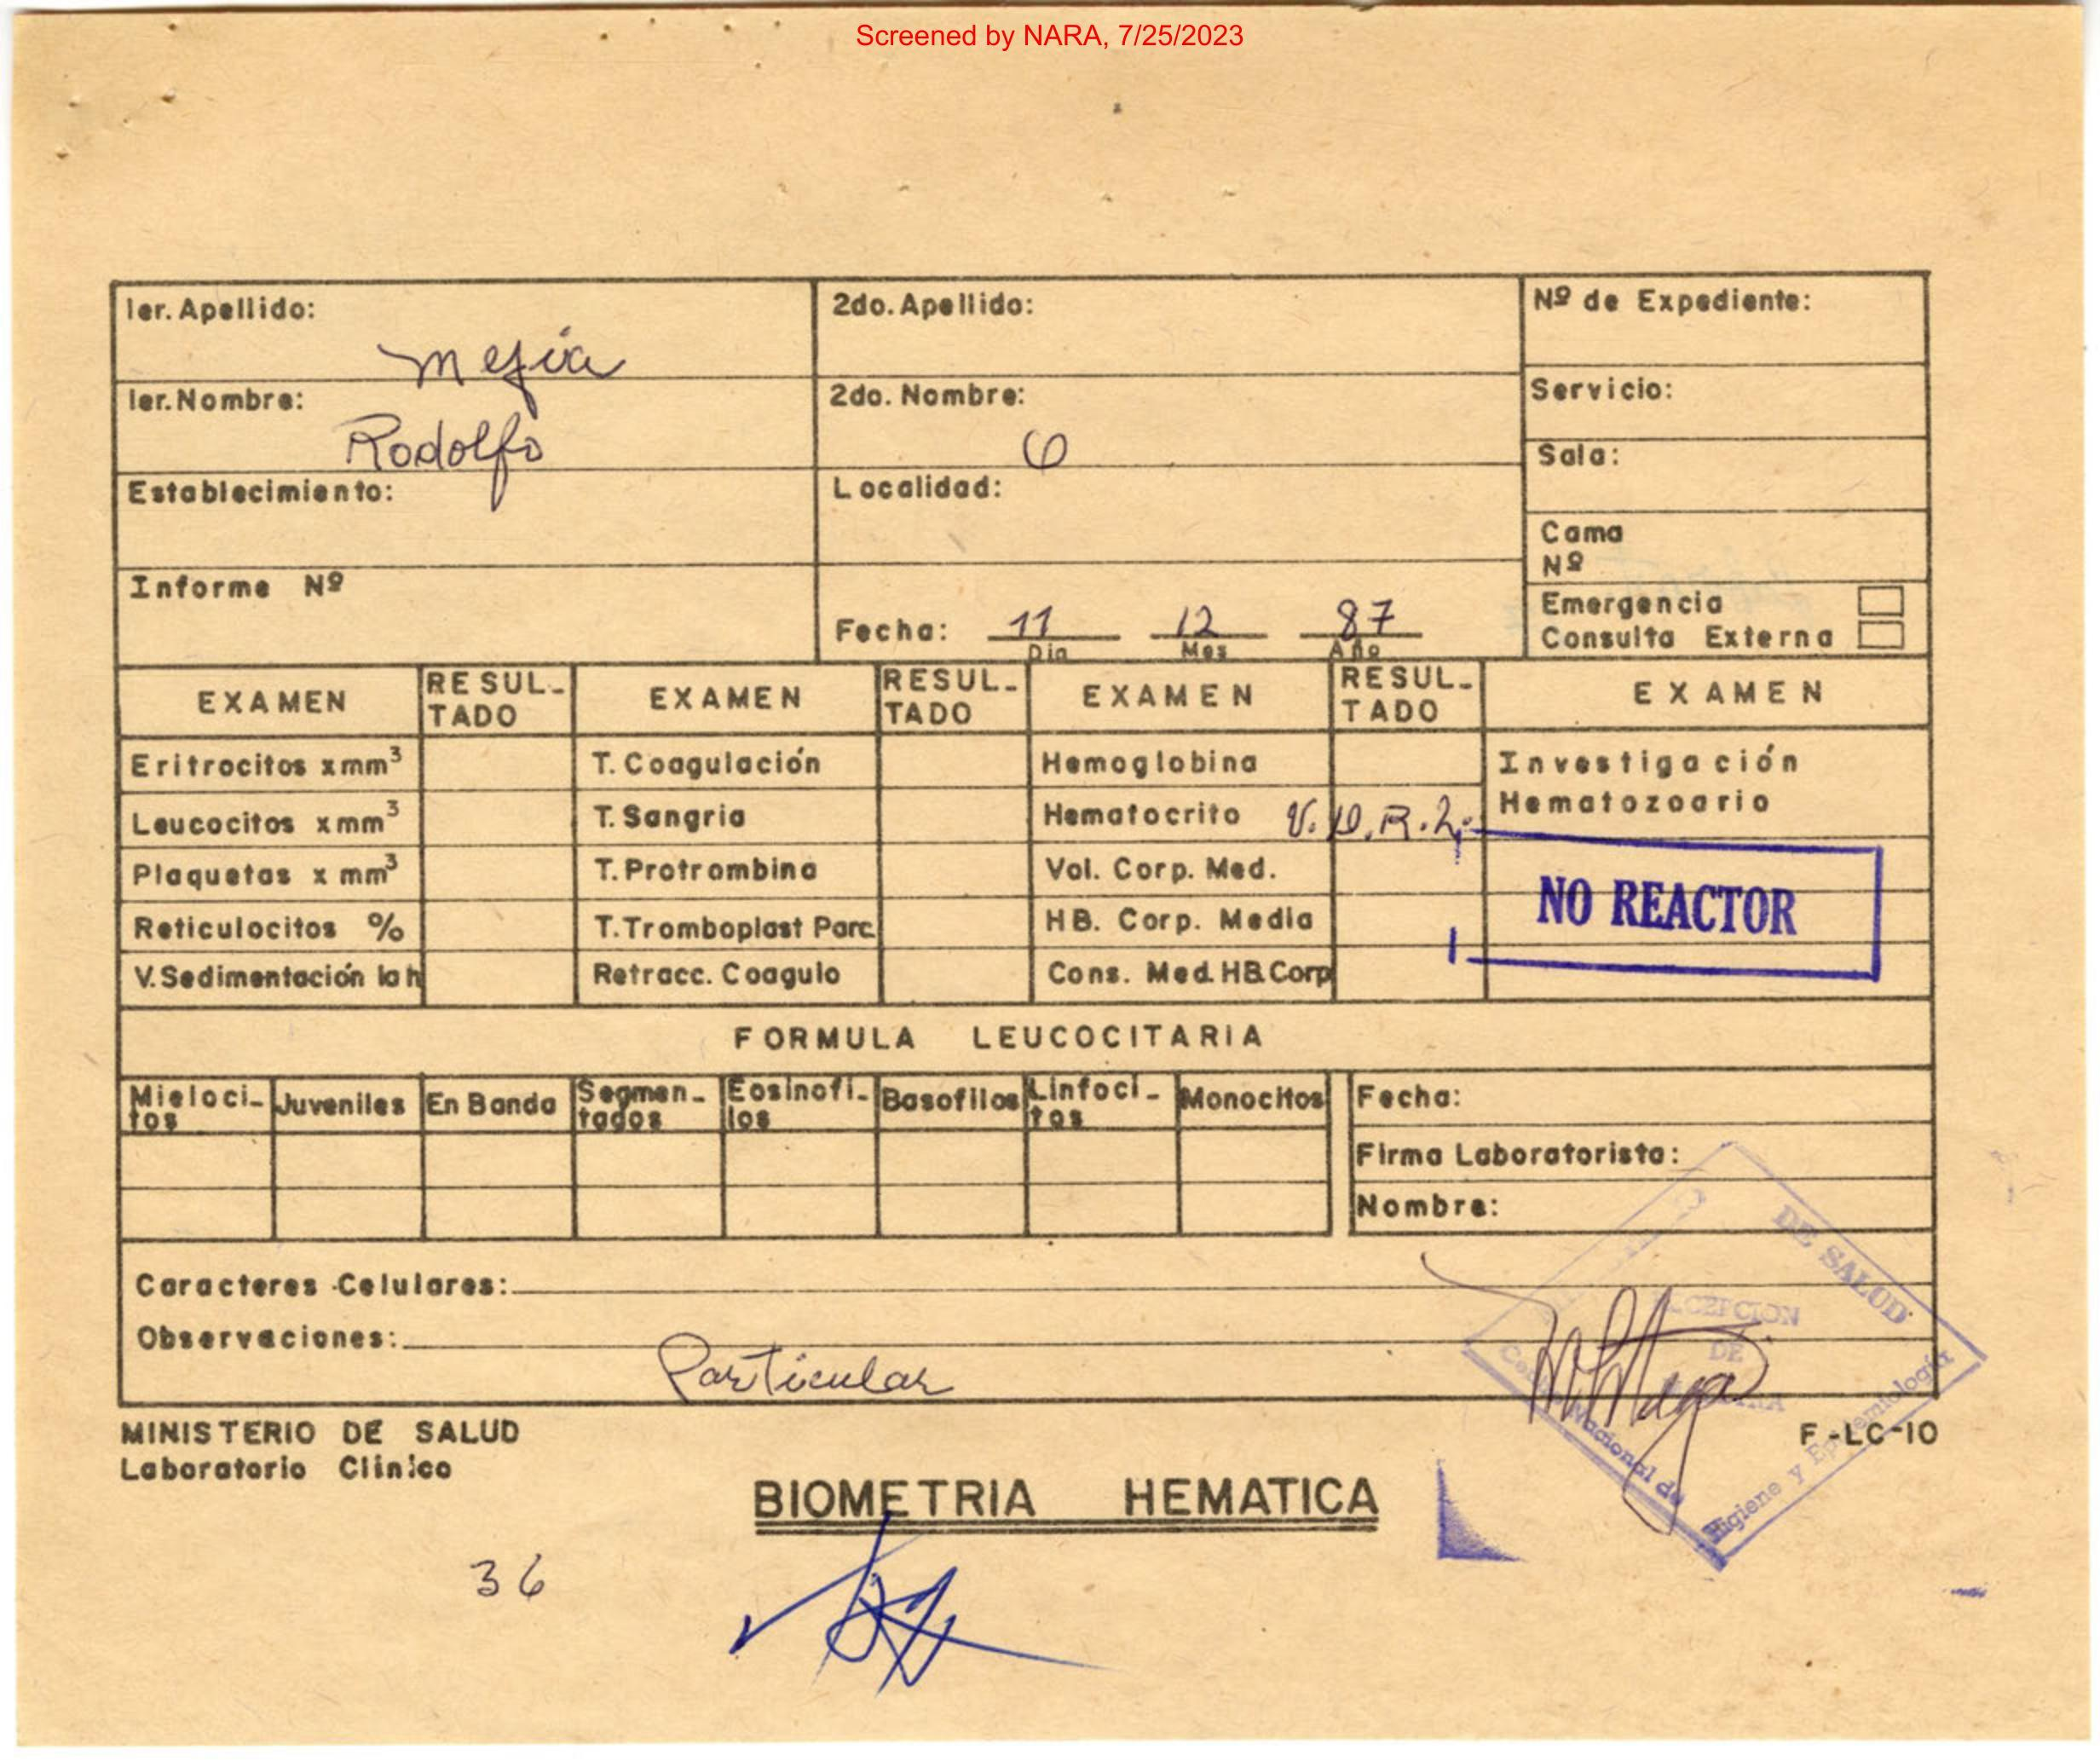 Screened by NARA, 7/25/2023
1er. Apellido: Mejía
2do. Apellido:
Nº de Expediente:
1er. Nombre: Rodolfo
2do. Nombre:
Servicio:
Sala:
Establecimiento:
Localidad:
Cama
Nº
Informe Nº
Fecha: 11 12 87
Dia Mes Año
Emergencia
Consulta Externa
EXAMEN RESUL-TADO EXAMEN RESUL-TADO EXAMEN RESUL-TADO EXAMEN
Eritrocitos x mm³ T. Coagulación Hemoglobina Investigación
Hematozoario
Leucocitos x mm³ T. Sangria Hematocrito V.D.R.L.
Plaquetas x mm³ T. Protrombina Vol. Corp. Med.
NO REACTOR
Reticulocitos % T. Tromboplast Parc. HB. Corp. Media
V. Sedimentación 1a h Retracc. Coagulo Cons. Med. HB. Corp
FORMULA LEUCOCITARIA
Mieloci-tos Juveniles En Banda Segmen-tados Eosinofi-los Basofilos Linfoci-tos Monocitos Fecha:
Firma Laboratorista:
Nombre:
DE SALUD
Caracteres Celulares:
Observaciones: Particular
DE
Nacional de
Higiene y Epidemiología
MINISTERIO DE SALUD
F-LC-10
Laboratorio Clinico
BIOMETRIA HEMATICA
36